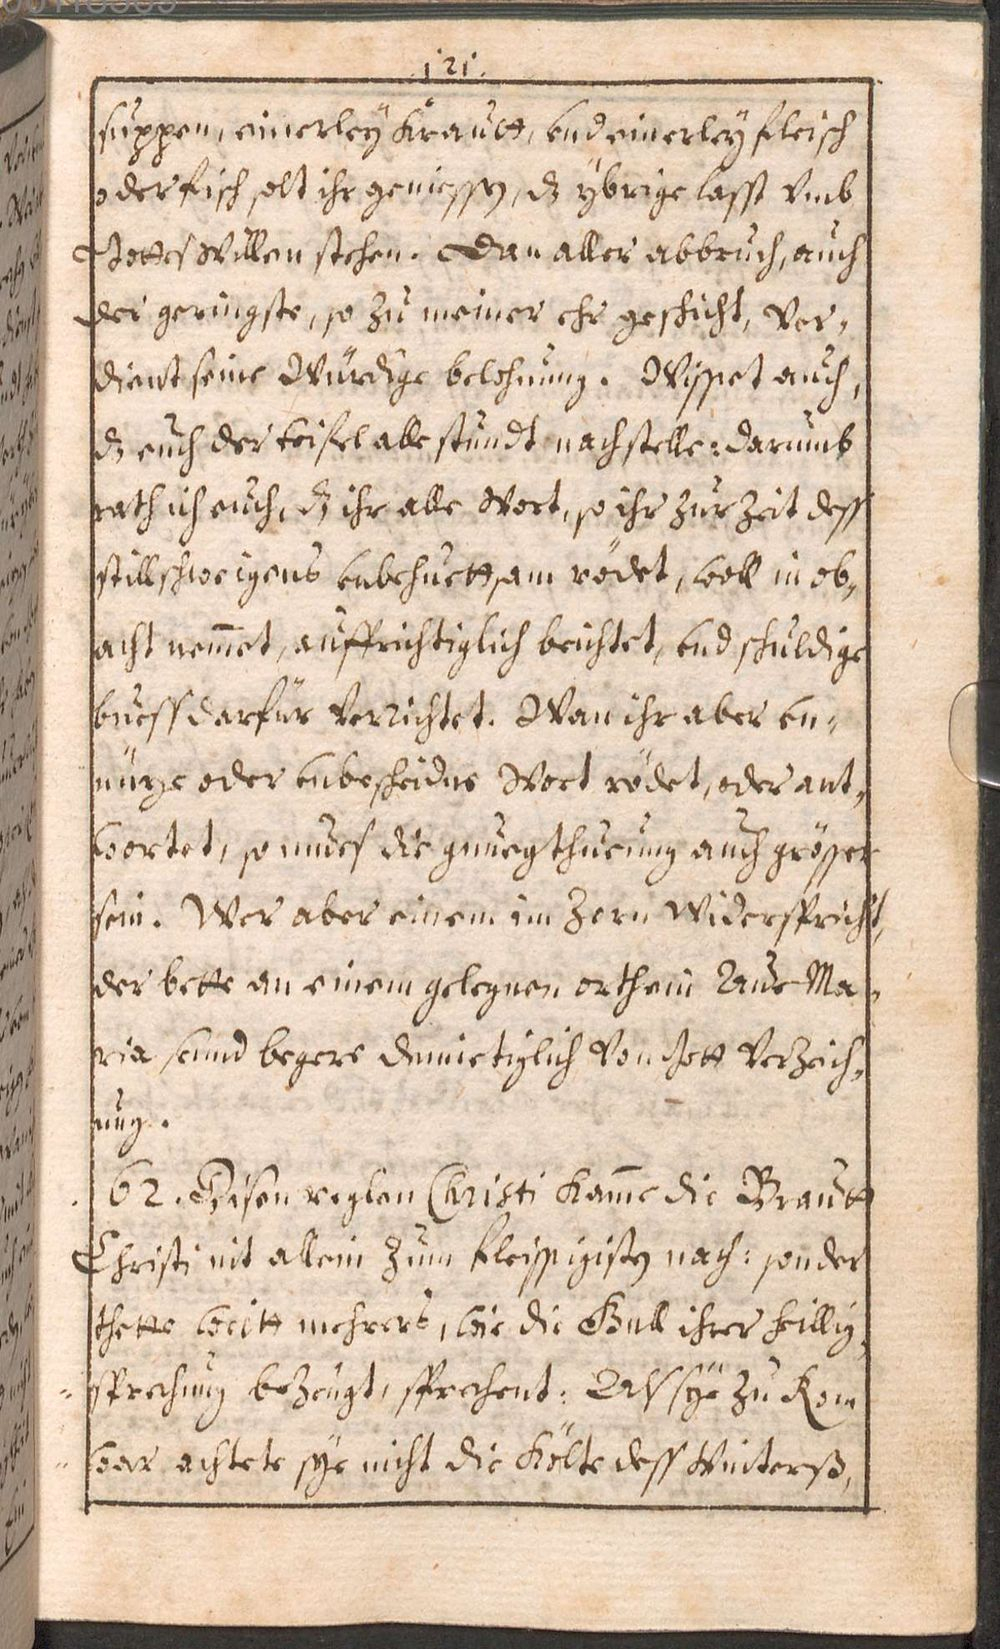 121.
suppen, einerleÿ Krautt, vnd einerleÿ fleisch
oder fisch solt ihr geniessen, dz ÿbrige lasst vmb
Gottes Willen stehen. Dan aller abbruch, auch
der geringste, so zu meiner ehr geschicht, ver,
dient seine Würdige belohnung. Wisset auch,
dz euch der teifel alle stundt nachstelle: darumb
rath ich euch, dz ihr alle Wort, so ihr zur Zeit dess
stillschweigens vnbehuettsam rödet, woll in ob,
acht nem̄et, auffrichtiglich beichtet, vnd schuldige
buess darfür verrichtet. Wan ihr aber vn,
nüze oder vnbescheidne Wort rödet, oder ant,
wortet, so mues die gnuegthueung auch grösser
sein. Wer aber einem im Zorn Widerspricht,
der bette an einem gelegnen orth ein Aue Ma,
ria vnnd begere demietiglich von Gott verzeich,
nung.
62. Disen reglen Christi kam̄e die Brautt
Christi nit allein zum fleissigisten nach: sonder
thette weitt mehrers, wie die Bull ihrer heillig,
sprechung bezeugt, sprechent: Als sÿe zu Rom
war achtete sÿe nicht die Költe dess Winterss,